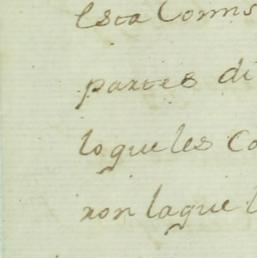 esta Comis
partes di
loqueles Co
ron laquel